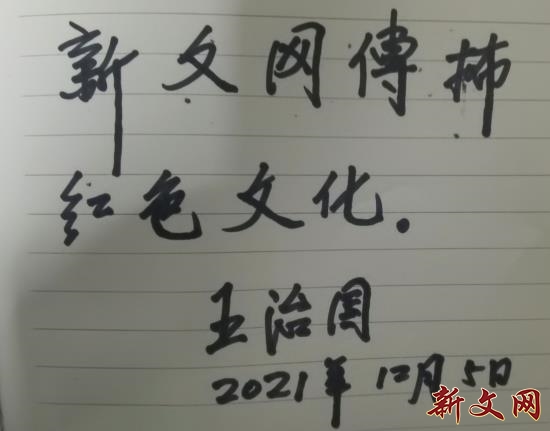 新文网傳播
红色文化.
王治国
2021年12月5日
新文网